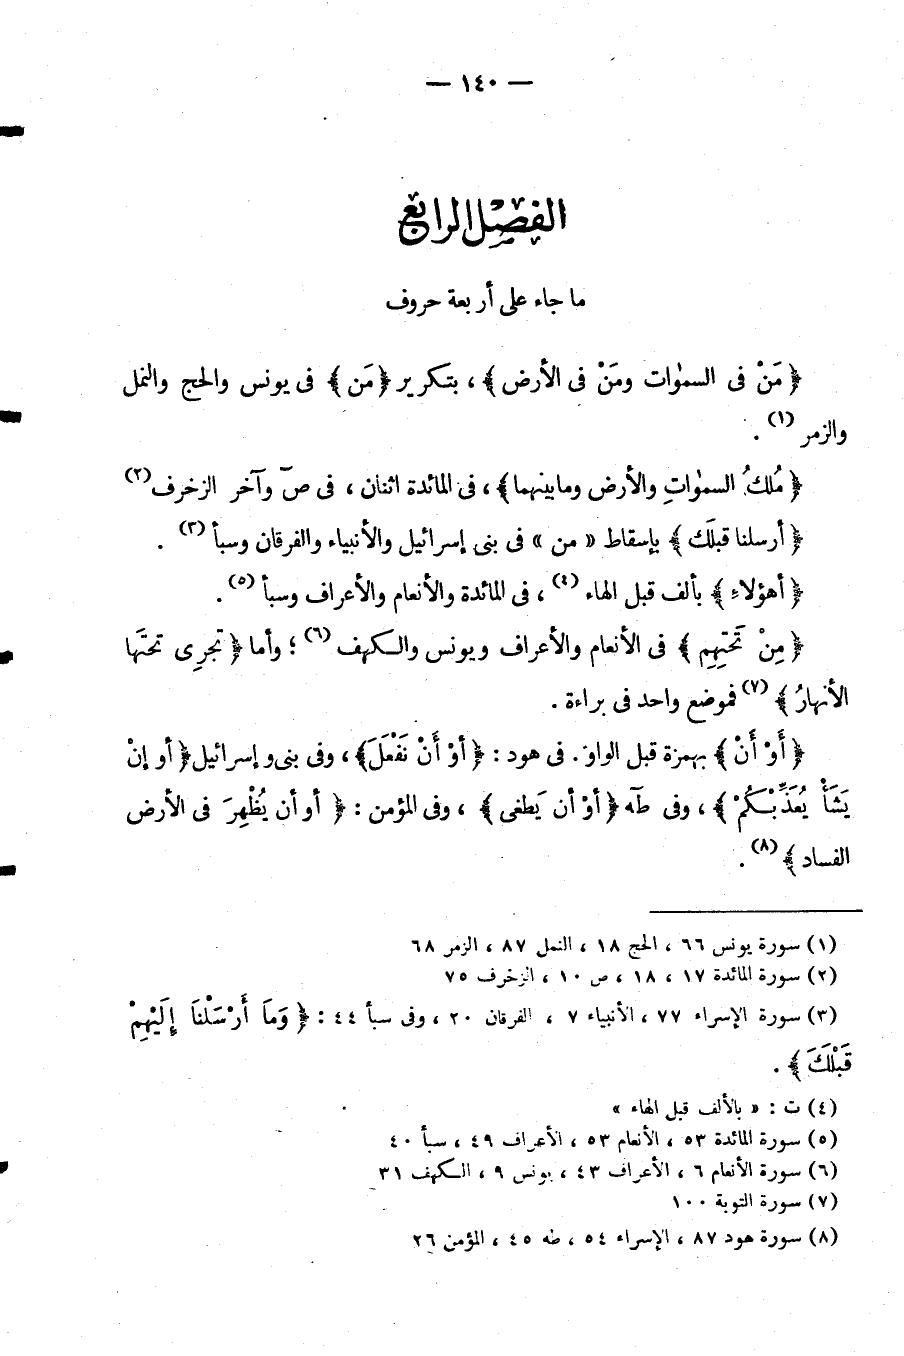 — ١٤٠ —
الفصل الرابع
ما جاء على أربعة حروف
﴿ مَنْ فى السمٰوات ومَنْ فى الأرض ﴾ ، بتكرير ﴿ مَن ﴾ فى يونس والحج والنمل
والزمر (١) .
﴿ مُلكُ السمٰواتِ والأرض وما بينهما ﴾ ، فى المائدة اثنان ، فى صٓ وآخر الزخرف (٢)
﴿ أرسلنا قبلَك ﴾ بإسقاط « من » فى بنى إسرائيل والأنبياء والفرقان وسبأ (٣) .
﴿ أهؤلاءِ ﴾ بألف قبل الهاء (٤) ، فى المائدة والأنعام والأعراف وسبأ (٥) .
﴿ مِنْ تَحتِهِم ﴾ فى الأنعام والأعراف ويونس والكهف (٦) ؛ وأما ﴿ تجرِى تحتَها
الأنهارُ ﴾ (٧) فموضع واحد فى براءة .
﴿ أَوْ أَنْ ﴾ بهمزة قبل الواو . فى هود : ﴿ أوْ أَنْ نَفْعَلَ ﴾ ، وفى بنى و إسرائيل ﴿ أو إنْ
يَشَأْ يُعَذِّبْكُمْ ﴾ ، وفى طٓه ﴿ أوْ أن يَطغى ﴾ ، وفى المؤمن : ﴿ أو أن يُظْهِرَ فى الأرض
الفساد ﴾ (٨) .
(١) سورة يونس ٦٦ ، الحج ١٨ ، النمل ٨٧ ، الزمر ٦٨
(٢) سورة المائدة ١٧ ، ١٨ ، ص ١٠ ، الزخرف ٧٥
(٣) سورة الإسراء ٧٧ ، الأنبياء ٧ ، الفرقان ٢٠ ، وفى سبأ ٤٤ : ﴿ وَمَا أَرْسَلْنَا إِلَيْهِمْ
قَبْلَكَ ﴾ .
(٤) ت : « بالألف قبل الهاء »
(٥) سورة المائدة ٥٣ ، الأنعام ٥٣ ، الأعراف ٤٩ ، سبأ ٤٠
(٦) سورة الأنعام ٦ ، الأعراف ٤٣ ، يونس ٩ ، الكهف ٣١
(٧) سورة التوبة ١٠٠
(٨) سورة هود ٨٧ ، الإسراء ٥٤ ، طه ٤٥ ، المؤمن ٢٦